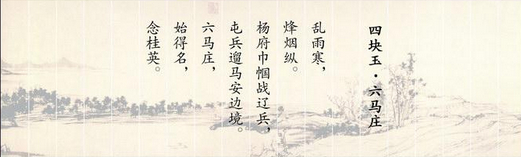 四块玉·六马庄
乱雨寒，
烽烟纵。
杨府巾帼战辽兵，
屯兵遛马安边境。
六马庄，
始得名，
念桂英。